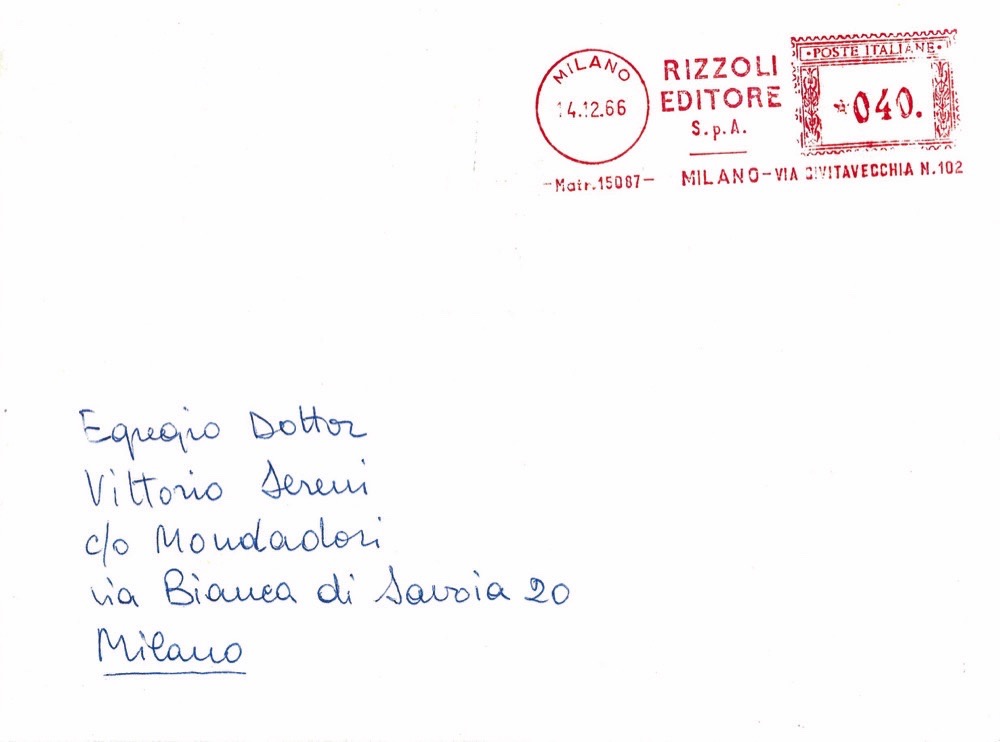 MILANO
14.12.66
-Matr.15087-
RIZZOLI
EDITORE
S.p.A.
MILANO-VIA CIVITAVECCHIA N.102
•POSTE ITALIANE•
*040.
Egregio Dottor
Vittorio Sereni
c/o Mondadori
via Bianca di Savoia 20
Milano